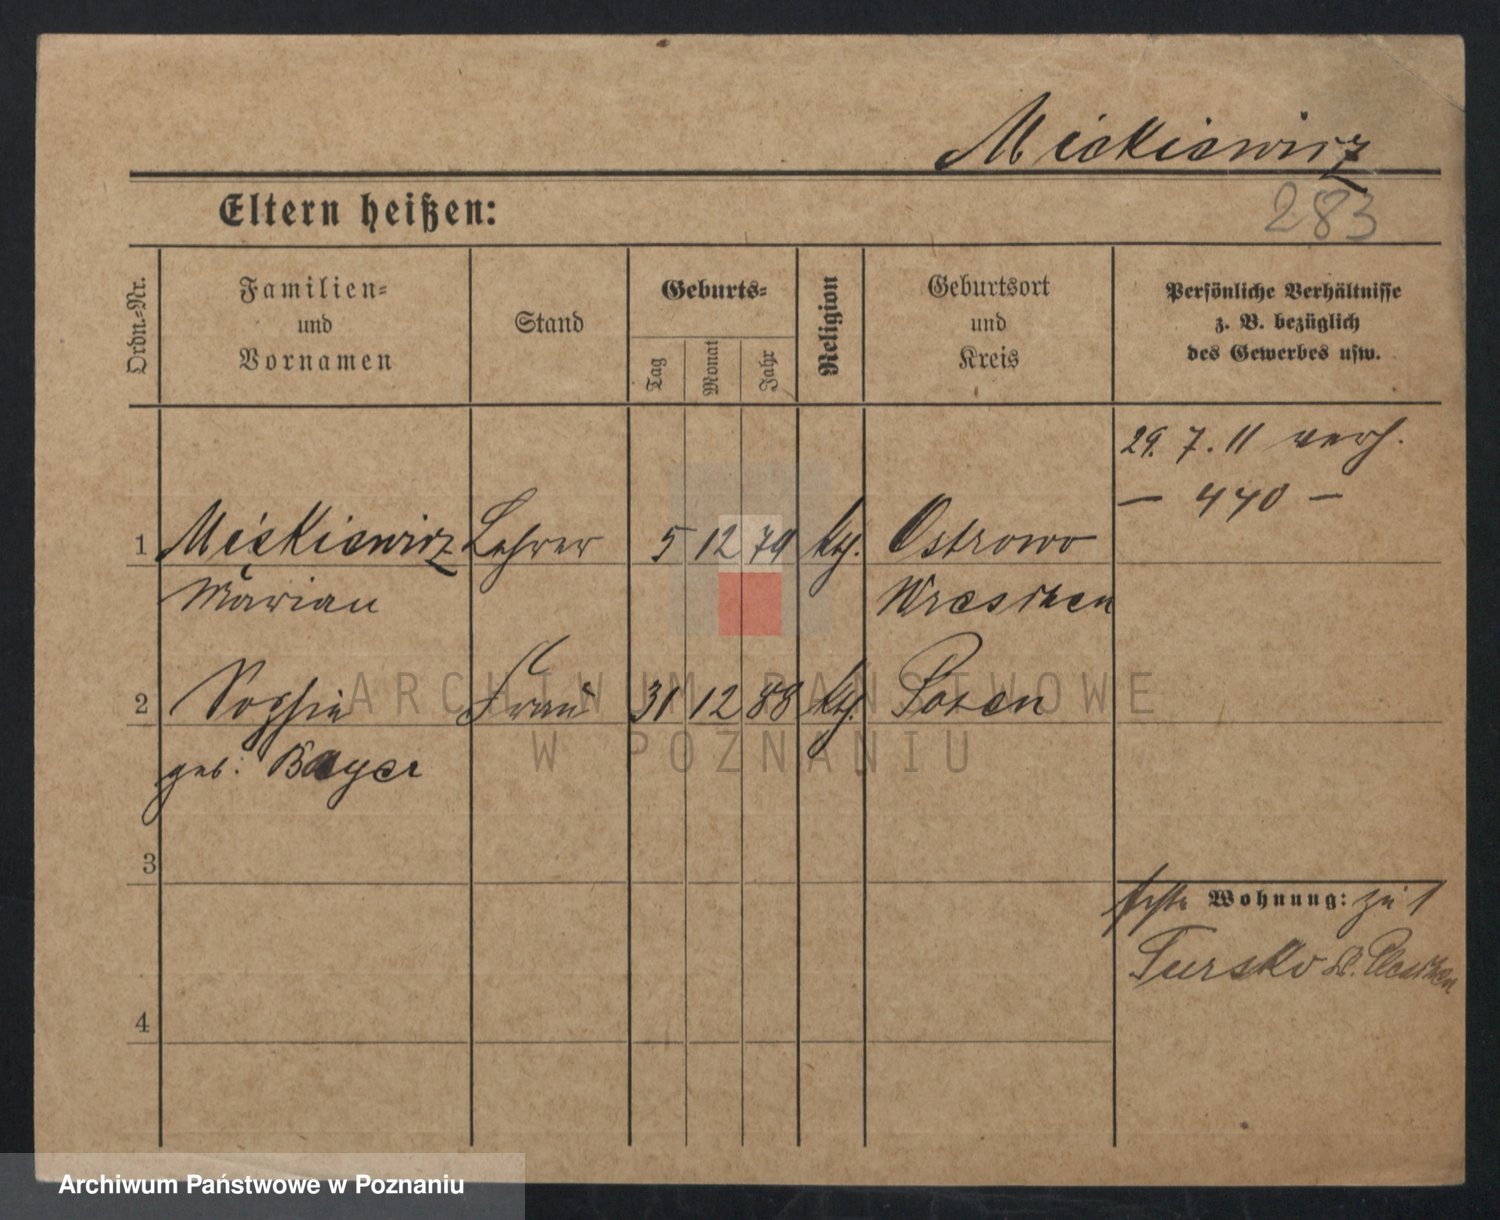 Mickiewicz
283
Eltern heißen:
Ordn.-Nr.
Familien-
und
Vornamen
Stand
Geburts-
Tag
Monat
Jahr
Religion
Geburtsort
und
Kreis
Persönliche Verhältnisse
z. B. bezüglich
des Gewerbes usw.
29. 7. 11 verh.
— 440 —
1 Mickiewicz Lehrer 5 12 79 kth. Ostrowo
Marian Wreschen
2 Sophie Frau 31 12 88 kth. Posen
geb. Bayer
3
4
Wohnung: zu 1
Tursko Kr. Pleschen
ARCHIWUM PAŃSTWOWE
W POZNANIU
Archiwum Państwowe w Poznaniu